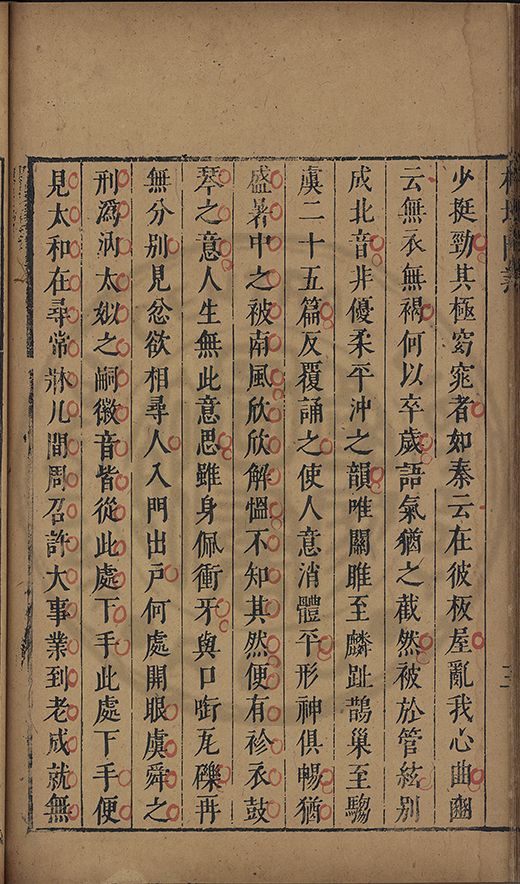 少挺勁其極窈窕者如秦云在彼板屋亂我心曲豳
云無衣無褐何以卒歲語氣猶之截然被於管絃別
成北音非優柔平沖之韻唯關雎至麟趾鵲巢至騶
虞二十五篇反覆誦之使人意消體平形神俱暢猶
盛暑中之被南風欣欣解慍不知其然便有袗衣鼓
琴之意人生無此意思雖身佩衝牙與口啣瓦礫再
無分別見忿欲相尋人入門出戶何處開眼虞舜之
刑溈汭太姒之嗣徽音皆從此處下手此處下手便
見太和在尋常牀几間周召許大事業到老成就無